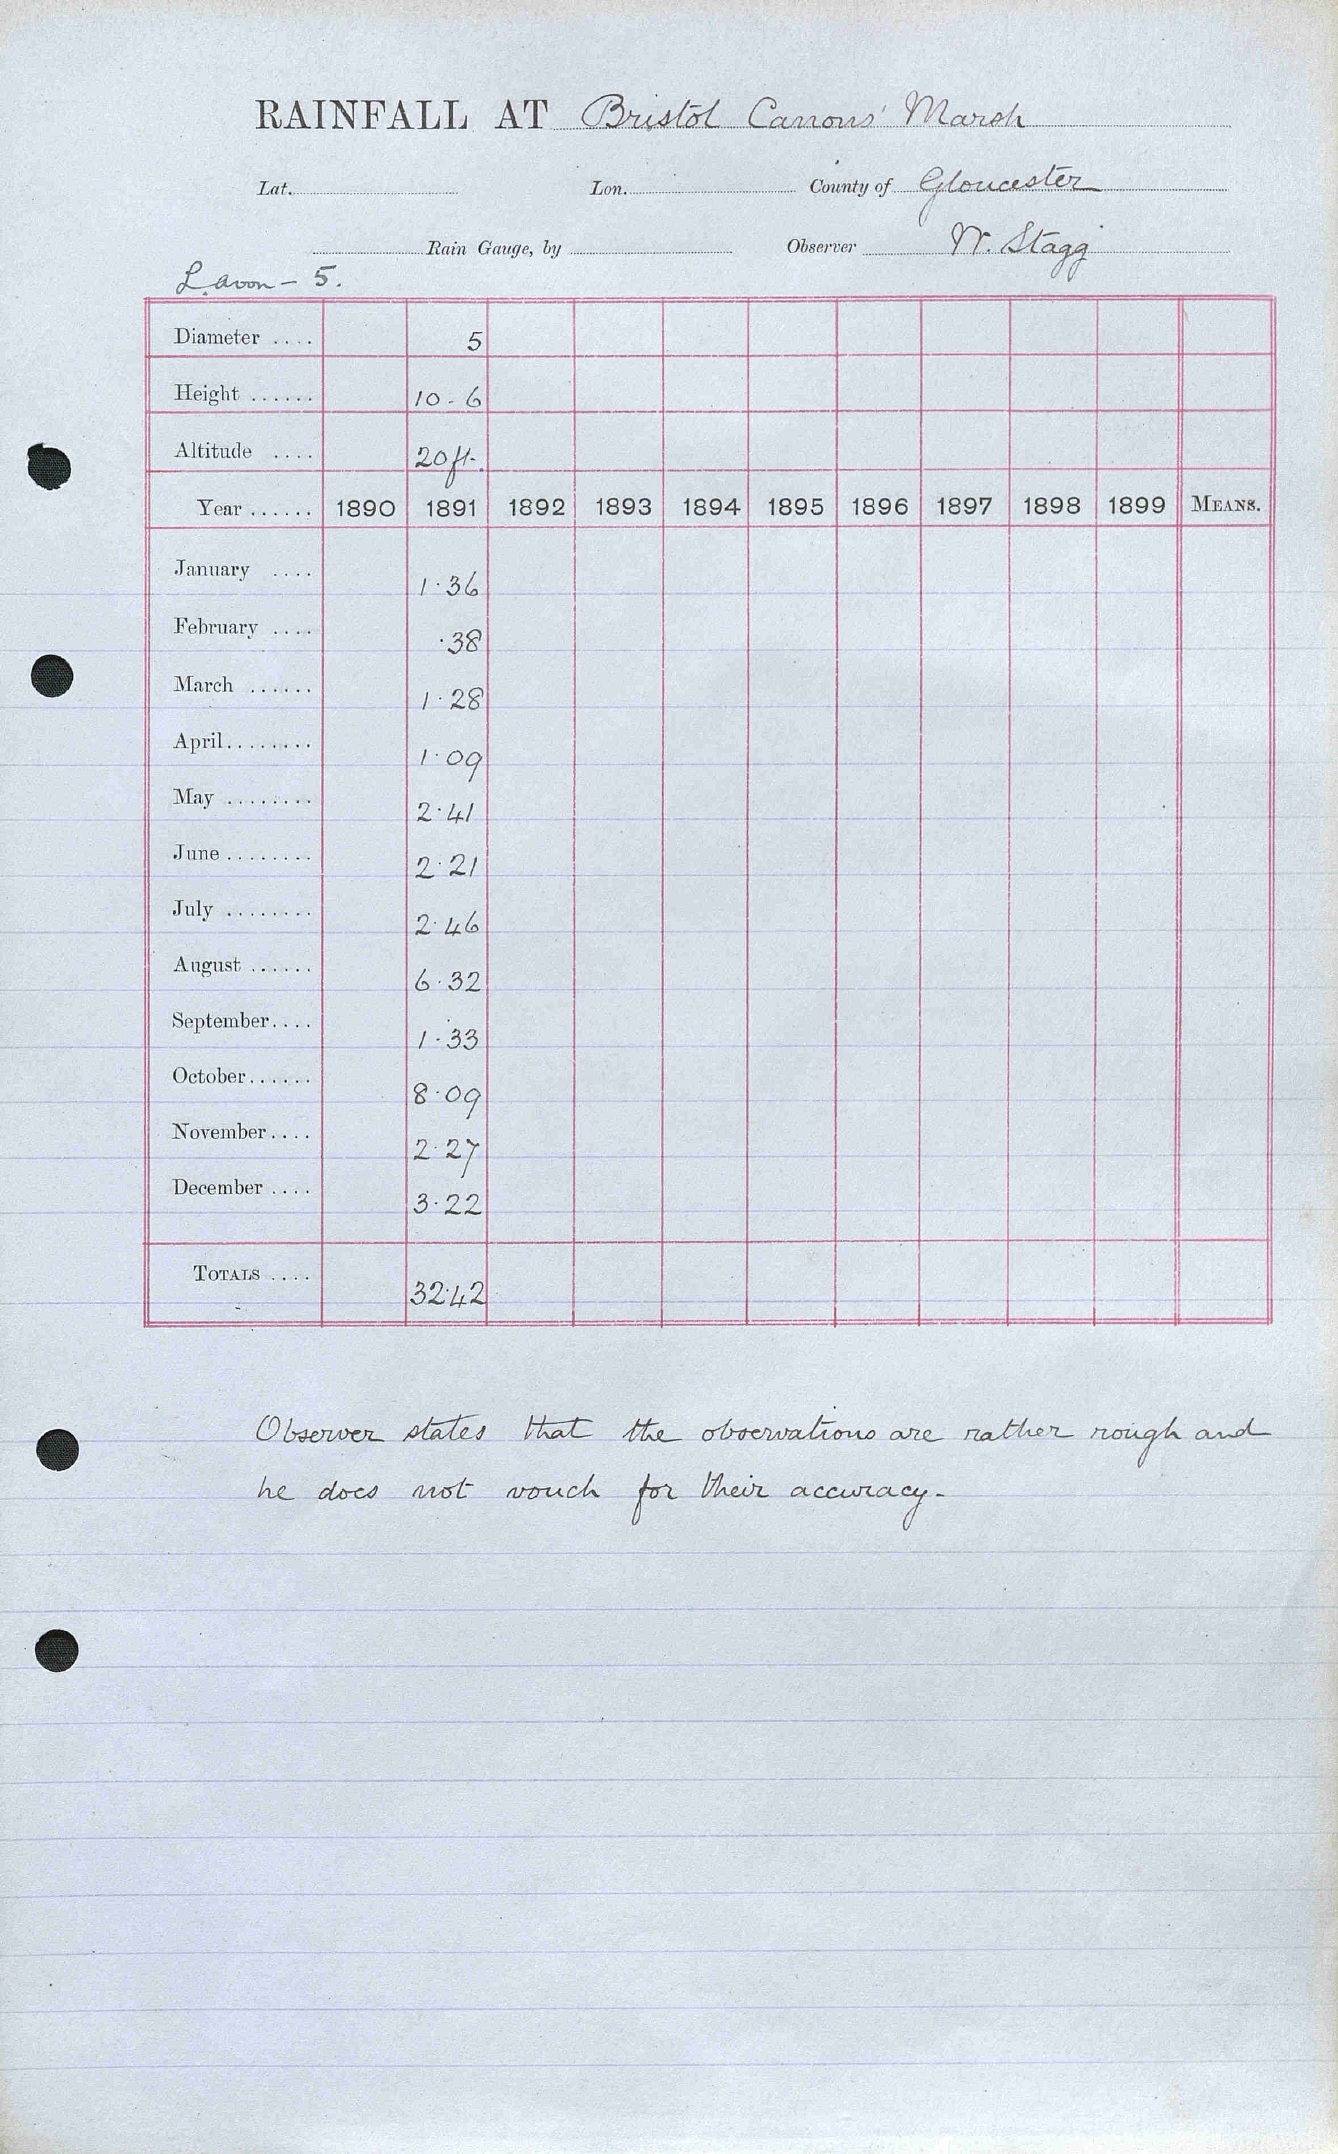 RAINFALL AT Bristol Canons' Marsh
Lat. Lon. County of Gloucester
Rain Gauge, by Observer W. Stagg
L. Avon - 5.
Diameter .... 5
Height ...... 10 - 6
Altitude .... 20 ft.
Year ...... 1890 1891 1892 1893 1894 1895 1896 1897 1898 1899 MEANS.
January .... 1.36
February .... .38
March ...... 1.28
April........ 1.09
May ........ 2.41
June ........ 2.21
July ........ 2.46
August ...... 6.32
September.... 1.33
October...... 8.09
November.... 2.27
December .... 3.22
TOTALS .... 32.42
Observer states that the observations are rather rough and
he does not vouch for their accuracy.